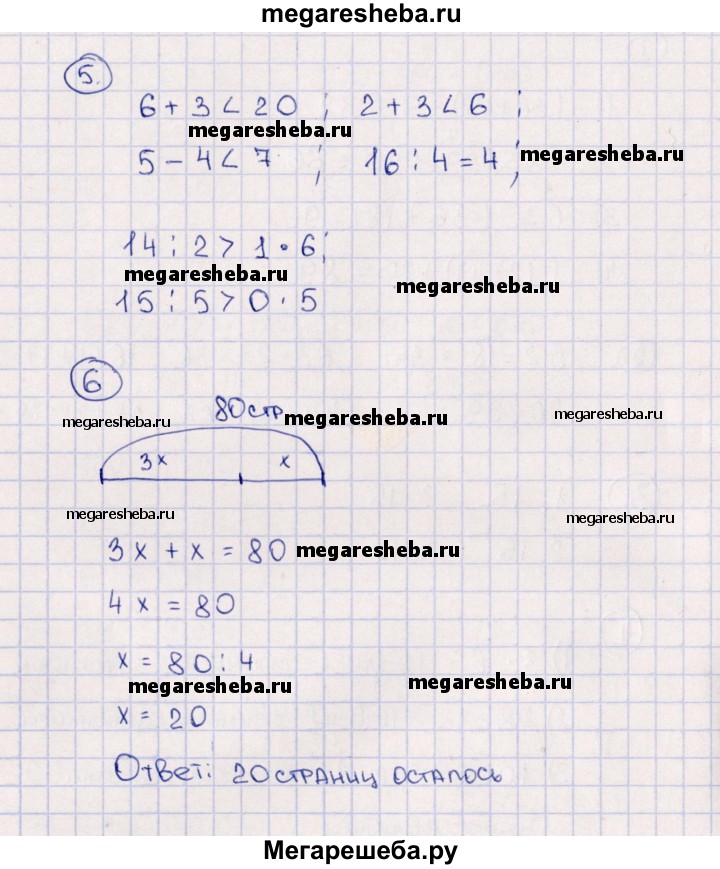 megaresheba.ru
5.
6 + 3 < 20 ; 2 + 3 < 6 ;
megaresheba.ru
5 - 4 < 7 ; 16 : 4 = 4 ;
megaresheba.ru
14 : 2 > 1 · 6 ;
megaresheba.ru
megaresheba.ru
15 : 5 > 0 · 5
6
80 стр
megaresheba.ru
megaresheba.ru
megaresheba.ru
3x x
megaresheba.ru
megaresheba.ru
3x + x = 80
megaresheba.ru
4x = 80
x = 80 : 4
megaresheba.ru
megaresheba.ru
x = 20
Ответ: 20 страниц осталось
Мегарешеба.ру